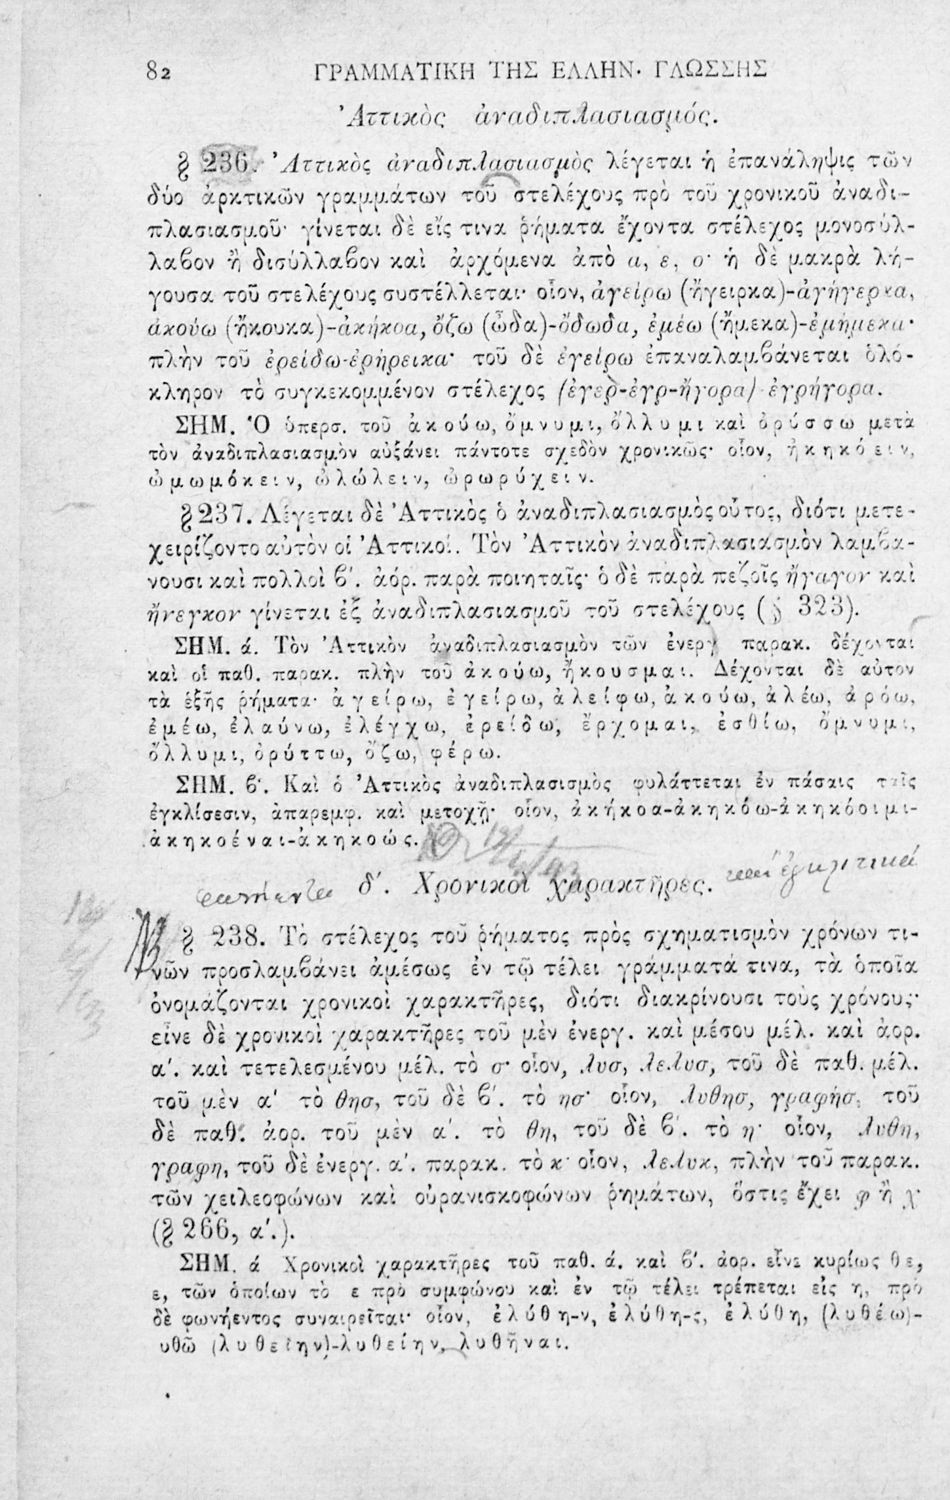 82 ΓΡΑΜΜΑΤΙΚΗ ΤΗΣ ΕΛΛΗΝ. ΓΛΩΣΣΗΣ
Ἀττικὸς ἀναδιπλασιασμός.
§ 236. Ἀττικὸς ἀναδιπλασιασμὸς λέγεται ἡ ἐπανάληψις τῶν
δύο ἀρκτικῶν γραμμάτων τοῦ στελέχους πρὸ τοῦ χρονικοῦ ἀναδι-
πλασιασμοῦ· γίνεται δὲ εἴς τινα ῥήματα ἔχοντα στέλεχος μονοσύλ-
λαβον ἢ δισύλλαβον καὶ ἀρχόμενα ἀπὸ α, ε, ο· ἡ δὲ μακρὰ λή-
γουσα τοῦ στελέχους συστέλλεται· οἷον, ἀγείρω (ἤγειρκα)-ἀγήγερκα,
ἀκούω (ἤκουκα)-ἀκήκοα, ὄζω (ὦδα)-ὄδωδα, ἐμέω (ἤμεκα)-ἐμήμεκα·
πλὴν τοῦ ἐρείδω-ἐρήρεικα· τοῦ δὲ ἐγείρω ἐπαναλαμβάνεται ὁλό-
κληρον τὸ συγκεκομμένον στέλεχος (ἐγερ-ἐγρ-ἤγορα) ἐγρήγορα.
ΣΗΜ. Ὁ ὑπερσ. τοῦ ἀκούω, ὄμνυμι, ὄλλυμι καὶ ὀρύσσω μετὰ
τὸν ἀναδιπλασιασμὸν αὐξάνει πάντοτε σχεδὸν χρονικῶς· οἷον, ἠκηκόειν,
ὠμωμόκειν, ὠλώλειν, ὠρωρύχειν.
§ 237. Λέγεται δὲ Ἀττικὸς ὁ ἀναδιπλασιασμὸς οὗτος, διότι μετε-
χειρίζοντο αὐτὸν οἱ Ἀττικοί. Τὸν Ἀττικὸν ἀναδιπλασιασμὸν λαμβά-
νουσι καὶ πολλοὶ β΄. ἀόρ. παρὰ ποιηταῖς· ὁ δὲ παρὰ πεζοῖς ἤγαγον καὶ
ἤνεγκον γίνεται ἐξ ἀναδιπλασιασμοῦ τοῦ στελέχους (§ 323).
ΣΗΜ. ά. Τὸν Ἀττικὸν ἀναδιπλασιασμὸν τῶν ἐνεργ παρακ. δέχονται
καὶ οἱ παθ. παρακ. πλὴν τοῦ ἀκούω, ἤκουσμαι. Δέχονται δὲ αὐτὸν
τὰ ἑξῆς ῥήματα· ἀγείρω, ἐγείρω, ἀλείφω, ἀκούω, ἀλέω, ἀρόω,
ἐμέω, ἐλαύνω, ἐλέγχω, ἐρείδω, ἔρχομαι, ἐσθίω, ὄμνυμι,
ὄλλυμι, ὀρύττω, ὄζω, φέρω.
ΣΗΜ. β΄. Καὶ ὁ Ἀττικὸς ἀναδιπλασισμὸς φυλάττεται ἐν πάσαις ταῖς
ἐγκλίσεσιν, ἀπαρεμφ. καὶ μετοχῇ· οἷον, ἀκήκοα-ἀκηκόω-ἀκηκόοιμι-
ἀκηκοέναι-ἀκηκοώς.
φωνήεντα δ΄. Χρονικοὶ χαρακτῆρες. καὶ ἐγκλιτικά
§ 238. Τὸ στέλεχος τοῦ ῥήματος πρὸς σχηματισμὸν χρόνων τι-
νῶν προσλαμβάνει ἀμέσως ἐν τῷ τέλει γράμματά τινα, τὰ ὁποῖα
ὀνομάζονται χρονικοὶ χαρακτῆρες, διότι διακρίνουσι τοὺς χρόνους·
εἶνε δὲ χρονικοὶ χαρακτῆρες τοῦ μὲν ἐνεργ. καὶ μέσου μέλ. καὶ ἀορ.
α΄. καὶ τετελεσμένου μέλ. τὸ σ· οἷον, λυσ, λελυσ, τοῦ δὲ παθ. μέλ.
τοῦ μὲν α΄ τὸ θησ, τοῦ δὲ β΄. τὸ ησ· οἷον, λυθησ, γραφησ, τοῦ
δὲ παθ. ἀορ. τοῦ μὲν α΄. τὸ θη, τοῦ δὲ β΄. τὸ η· οἷον, λυθη,
γραφη, τοῦ δὲ ἐνεργ. α΄. παρακ. τὸ κ· οἷον, λελυκ, πλὴν τοῦ παρακ.
τῶν χειλεοφώνων καὶ οὐρανισκοφώνων ῥημάτων, ὅστις ἔχει φ ἢ χ
(§ 266, α΄.).
ΣΗΜ. ά Χρονικοὶ χαρακτῆρες τοῦ παθ. ά. καὶ β΄. ἀορ. εἶνε κυρίως θε,
ε, τῶν ὁποίων τὸ ε πρὸ συμφώνου καὶ ἐν τῷ τέλει τρέπεται εἰς η, πρὸ
δὲ φωνήεντος συναιρεῖται· οἷον, ἐλύθη-ν, ἐλύθη-ς, ἐλύθη, (λυθέω)-
υθῶ (λυθείην)-λυθείην, λυθῆναι.